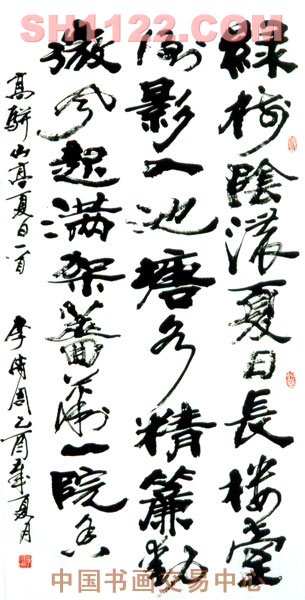 SH1122.COM
綠樹陰濃夏日長樓臺
倒影入池塘水精簾動
微风起满架薔薇一院香
高駢山亭夏日一首 李周乙酉夏月
中国书画交易中心